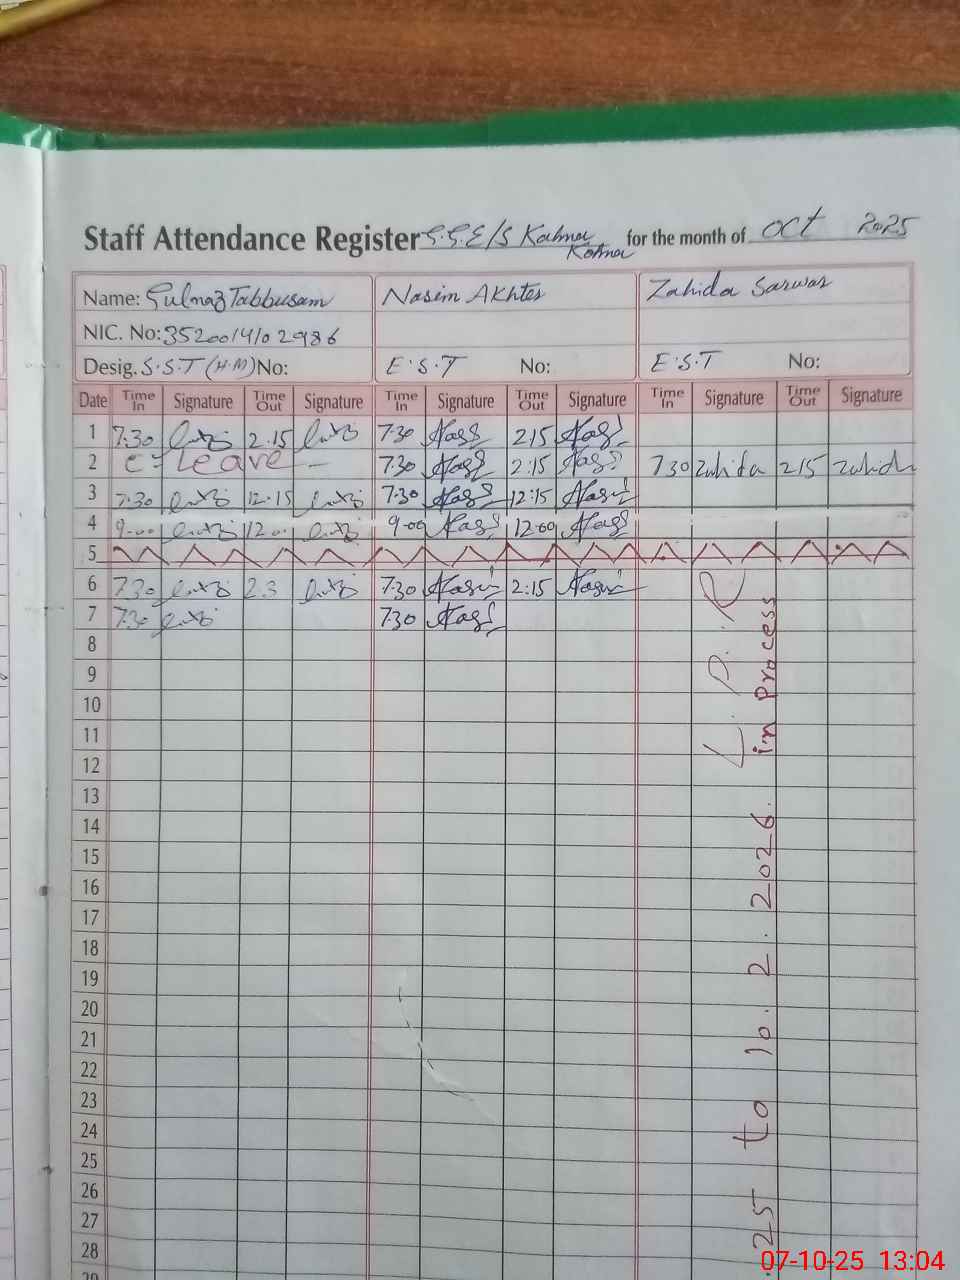 Staff Attendance Register G.G.E/S Kahna for the month of Oct 2025
Kohna
Name: Gulnaz Tabbusam Nasim Akhter Zahida Sarwar
NIC. No:
Desig. S.S.T (H.M) No: E.S.T No: E.S.T No:
Date Time In Signature Time Out Signature Time In Signature Time Out Signature Time In Signature Time Out Signature
1 7.30 2.15 7.30 2:15
2 C-Leave- 7.30 2:15 7 30 Zahida 2 15 Zahida
3 7:30 12.15 7:30 12:15
4 9-00 12.0 9-00 12:00
5
6 7.30 2.3 7.30 2:15
7 7.30 7.30
8
9
10
11
12
13
14
15
16
17
18
19
20
21
22
23
24
25
26
27
28
29
L.P.R
in Process
25 to 10.2.2026.
07-10-25 13:04